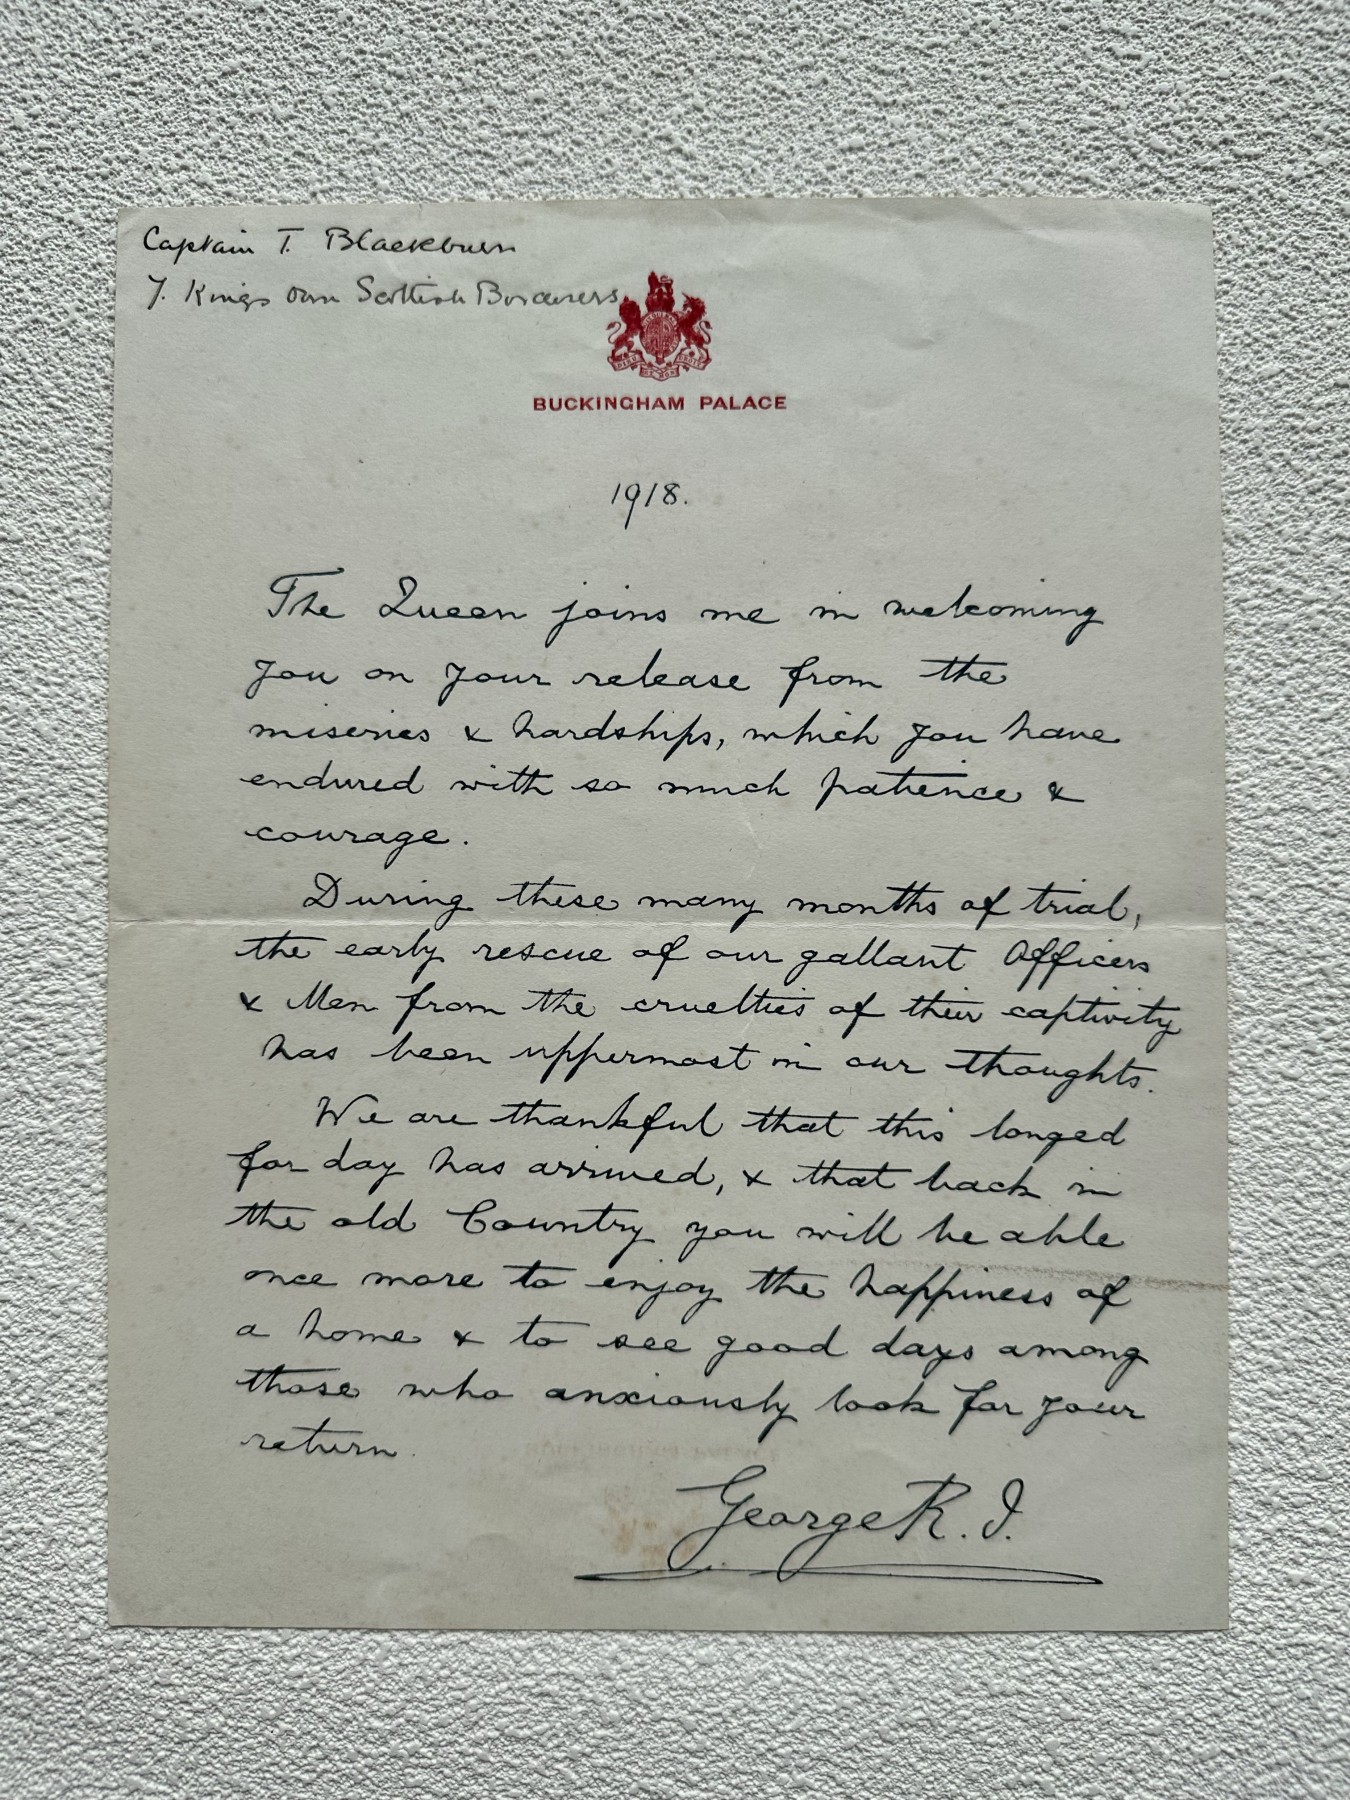 Captain T. Blackburn
7. Kings Own Scottish Borderers
BUCKINGHAM PALACE
1918.
The Queen joins me in welcoming
you on your release from the
miseries & hardships, which you have
endured with so much patience &
courage.
During these many months of trial,
the early rescue of our gallant Officers
& Men from the cruelties of their captivity
has been uppermost in our thoughts.
We are thankful that this longed
for day has arrived, & that back in
the old Country you will be able
once more to enjoy the happiness of
a home & to see good days among
those who anxiously look for your
return.
George R. I.